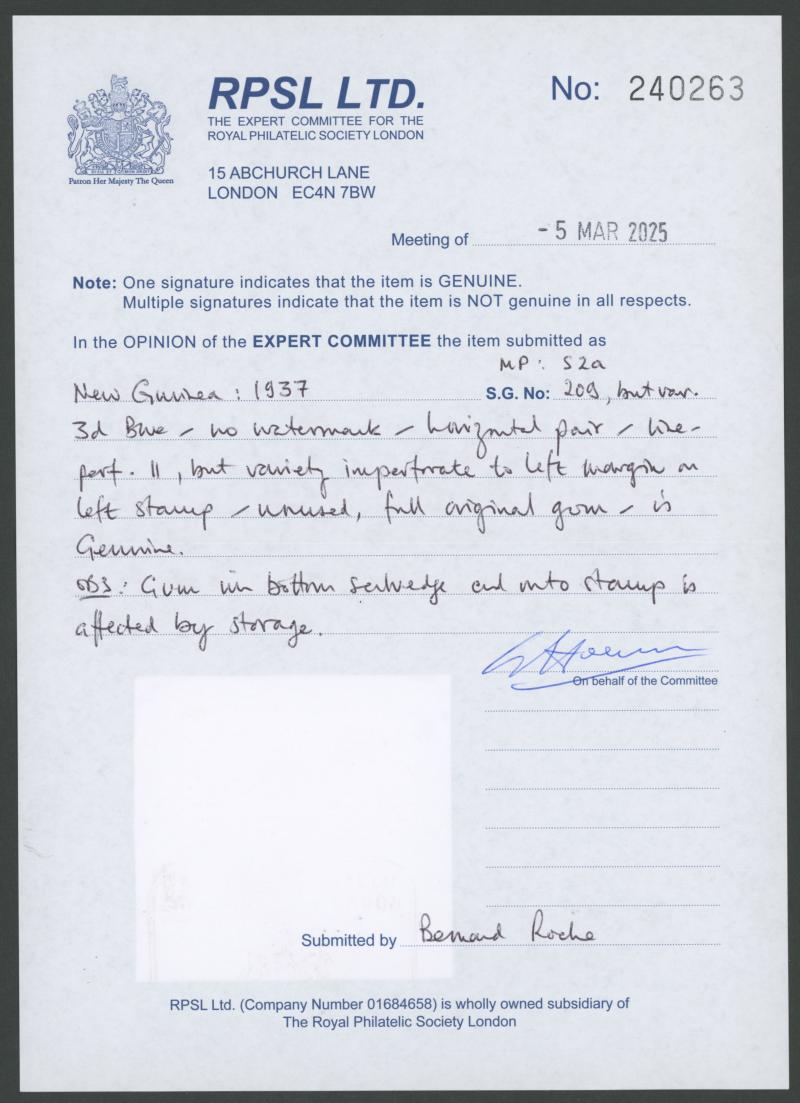 RPSL LTD.
THE EXPERT COMMITTEE FOR THE
ROYAL PHILATELIC SOCIETY LONDON
15 ABCHURCH LANE
LONDON EC4N 7BW
Patron Her Majesty The Queen
No: 240263
Meeting of - 5 MAR 2025
Note: One signature indicates that the item is GENUINE.
Multiple signatures indicate that the item is NOT genuine in all respects.
In the OPINION of the EXPERT COMMITTEE the item submitted as
MP: S2a
New Guinea: 1937 S.G. No: 209, but var.
3d Blue - no watermark - horizontal pair - line-
perf. 11, but variety imperforate to left margin on
left stamp - unused, full original gum - is
Genuine.
OBS: Gum in bottom selvedge and onto stamp is
affected by storage.
On behalf of the Committee
Submitted by Bernard Roche
RPSL Ltd. (Company Number 01684658) is wholly owned subsidiary of
The Royal Philatelic Society London